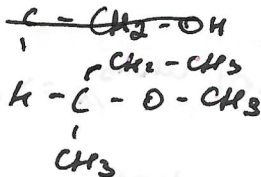 C - CH2 - OH
CH2 - CH3
H - C - O - CH3
CH3